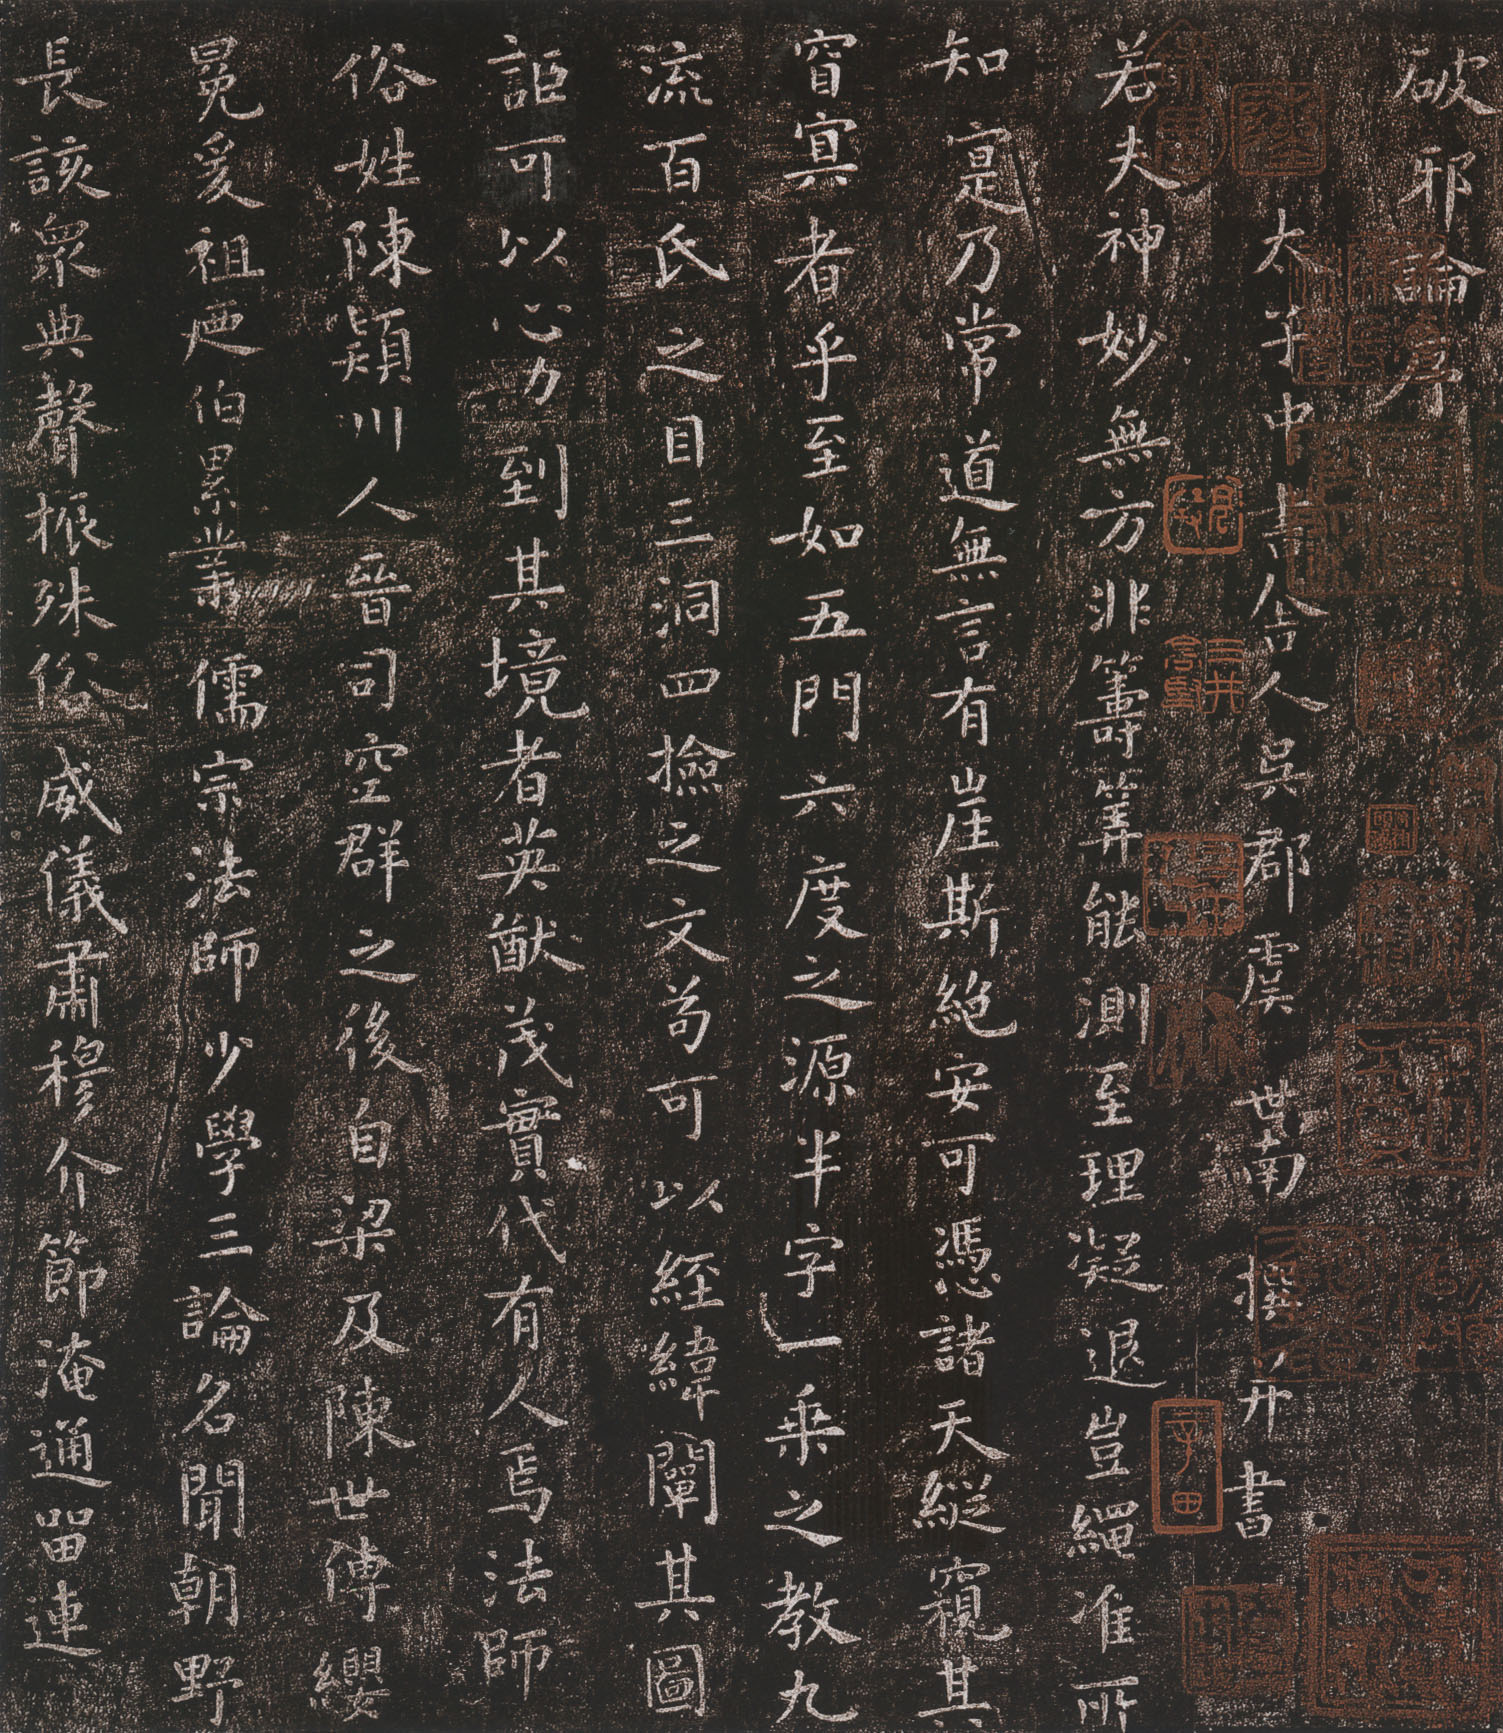 破邪論序
太子中書舍人吳郡虞世南撰并書
若夫神妙無方非籌筭能測至理凝退豈繩准所
知寔乃常道無言有崖斯絶安可憑諸天縱窺其
窅寘者乎至如五門六度之源半字一乘之教九
流百氏之目三洞四撿之文苟可以經緯闡其圖
詎可以心力到其境者英猷茂實代有人焉法師
俗姓陳潁川人晉司空群之後自梁及陳世傳纓
冕爰祖𨑳伯累業儒宗法師少學三論名聞朝野
長該衆典聲振殊俗威儀肅穆介節淹通留連